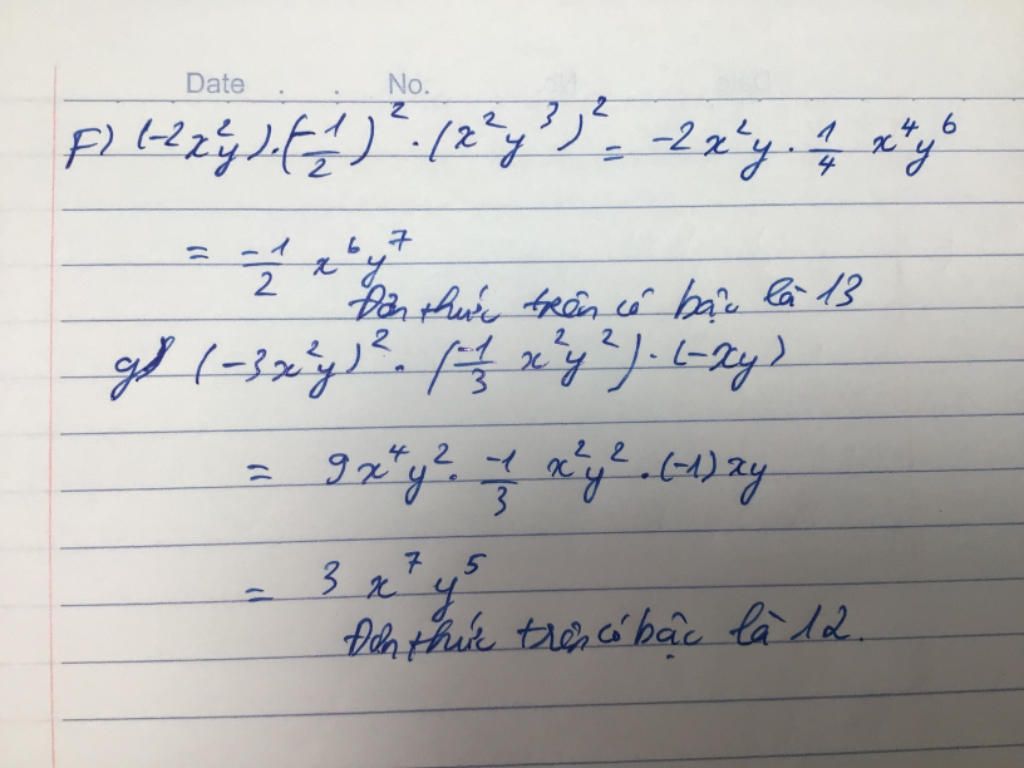 Date . . No.
F) (-2x²y).(-1/2)² . (x²y³)² = -2x²y . 1/4 x⁴y⁶
= -1/2 x⁶y⁷
Đơn thức trên có bậc là 13
g) (-3x²y)² . (-1/3 x²y²) . (-xy)
= 9x⁴y² . -1/3 x²y² . (-1)xy
= 3 x⁷ y⁵
Đơn thức trên có bậc là 12.